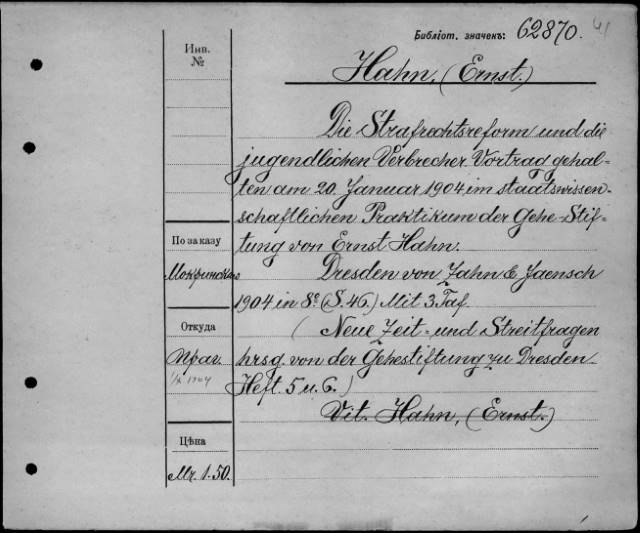 Библіот. значекъ: 62870.
Инв.
№
Hahn, (Ernst.)
Die Strafrechtsreform und die
jugendlichen Verbrecher. Vortrag gehal-
ten am 20. Januar 1904 im staatswissen-
schaftlichen Praktikum der Gehe-Stif-
tung von Ernst Hahn.
По заказу
Dresden von Zahn & Jaensch
1904 in 8º (S. 46.) Mit 3 Taf.
Откуда
(Neue Zeit- und Streitfragen
Прав.
hrsg. von der Gehestiftung zu Dresden.
Heft. 5 u. 6.)
Vit. Hahn, (Ernst.)
Цѣна
Mr. 1-50.